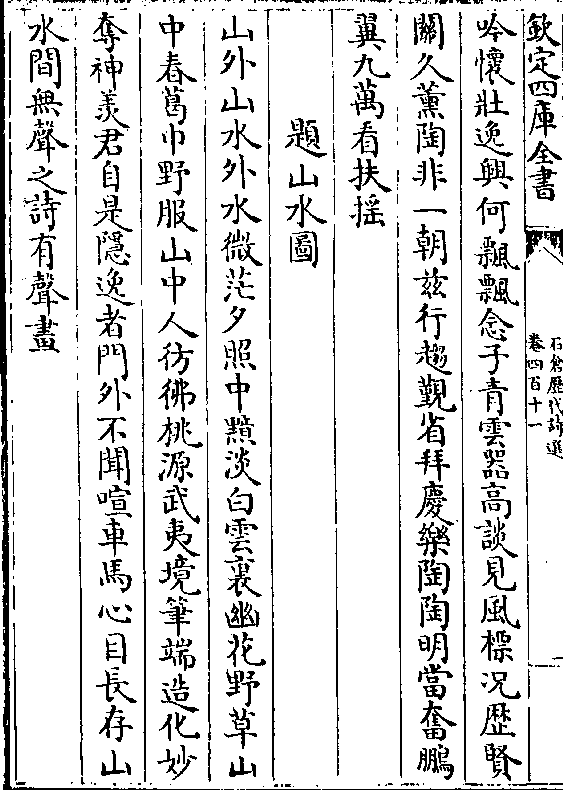 欽定四庫全書
石倉歷代詩選
卷四百十一
吟懷壯逸興何飄飄念子青雲器高談見風標况歴賢
關久薰陶非一朝兹行趨覲省拜慶樂陶陶明當奮鵬
翼九萬看扶揺
題山水圖
山外山水外水微茫夕照中黯淡白雲裏幽花野草山
中春葛巾野服山中人彷彿桃源武夷境筆端造化妙
奪神羨君自是隱逸者門外不聞喧車馬心目長存山
水間無聲之詩有聲畫